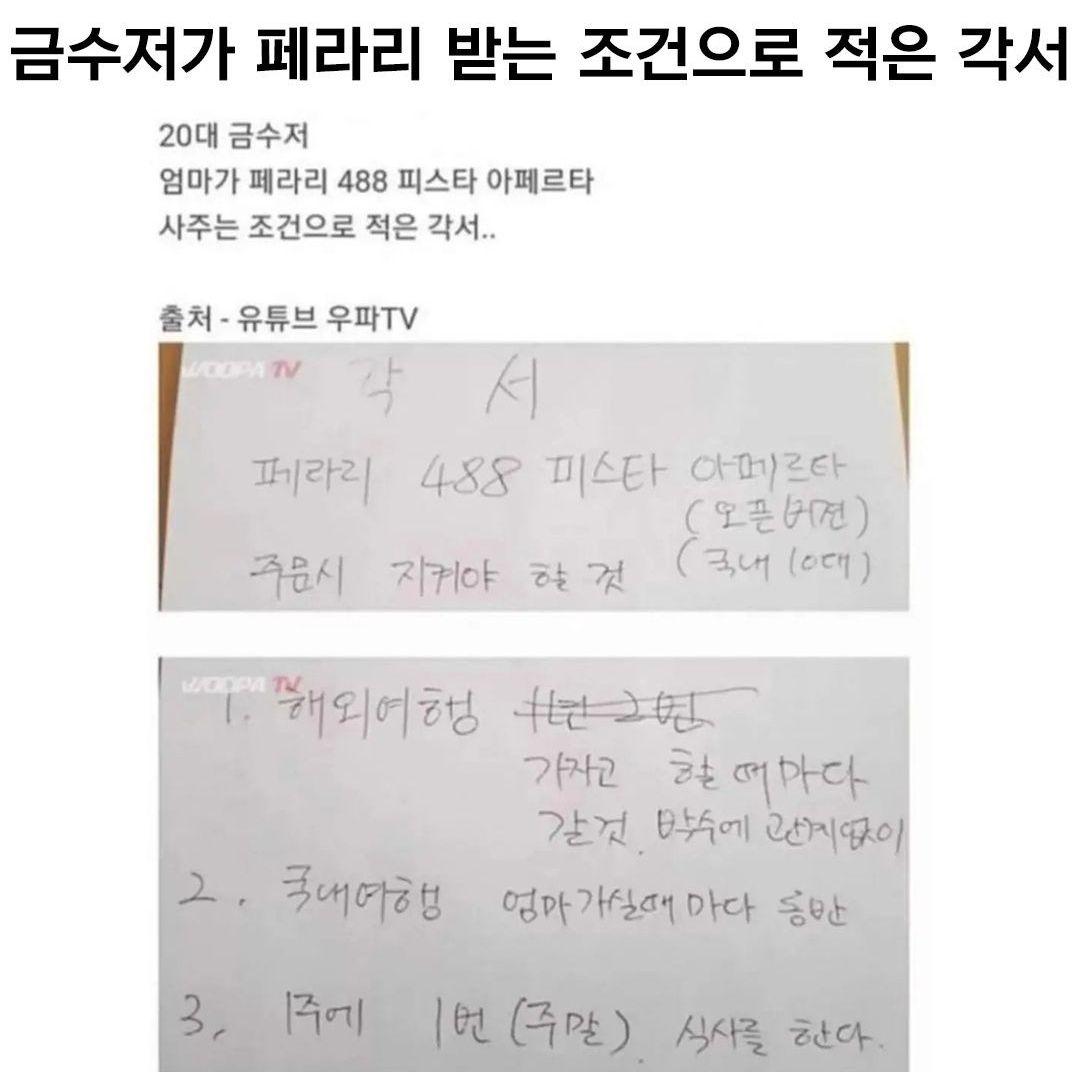 금수저가 페라리 받는 조건으로 적은 각서
20대 금수저
엄마가 페라리 488 피스타 아페르타
사주는 조건으로 적은 각서..
출처 - 유튜브 우파TV
WOOPA TV
각 서
페라리 488 피스타 아페르타
(오픈버젼)
주문시 지켜야 할 것 (국내 10대)
WOOPA TV
1. 해외여행
가자고 할때마다
갈것. 박수에 관계없이
2. 국내여행 엄마가실때마다 동반
3. 1주에 1번 (주말). 식사를 한다.